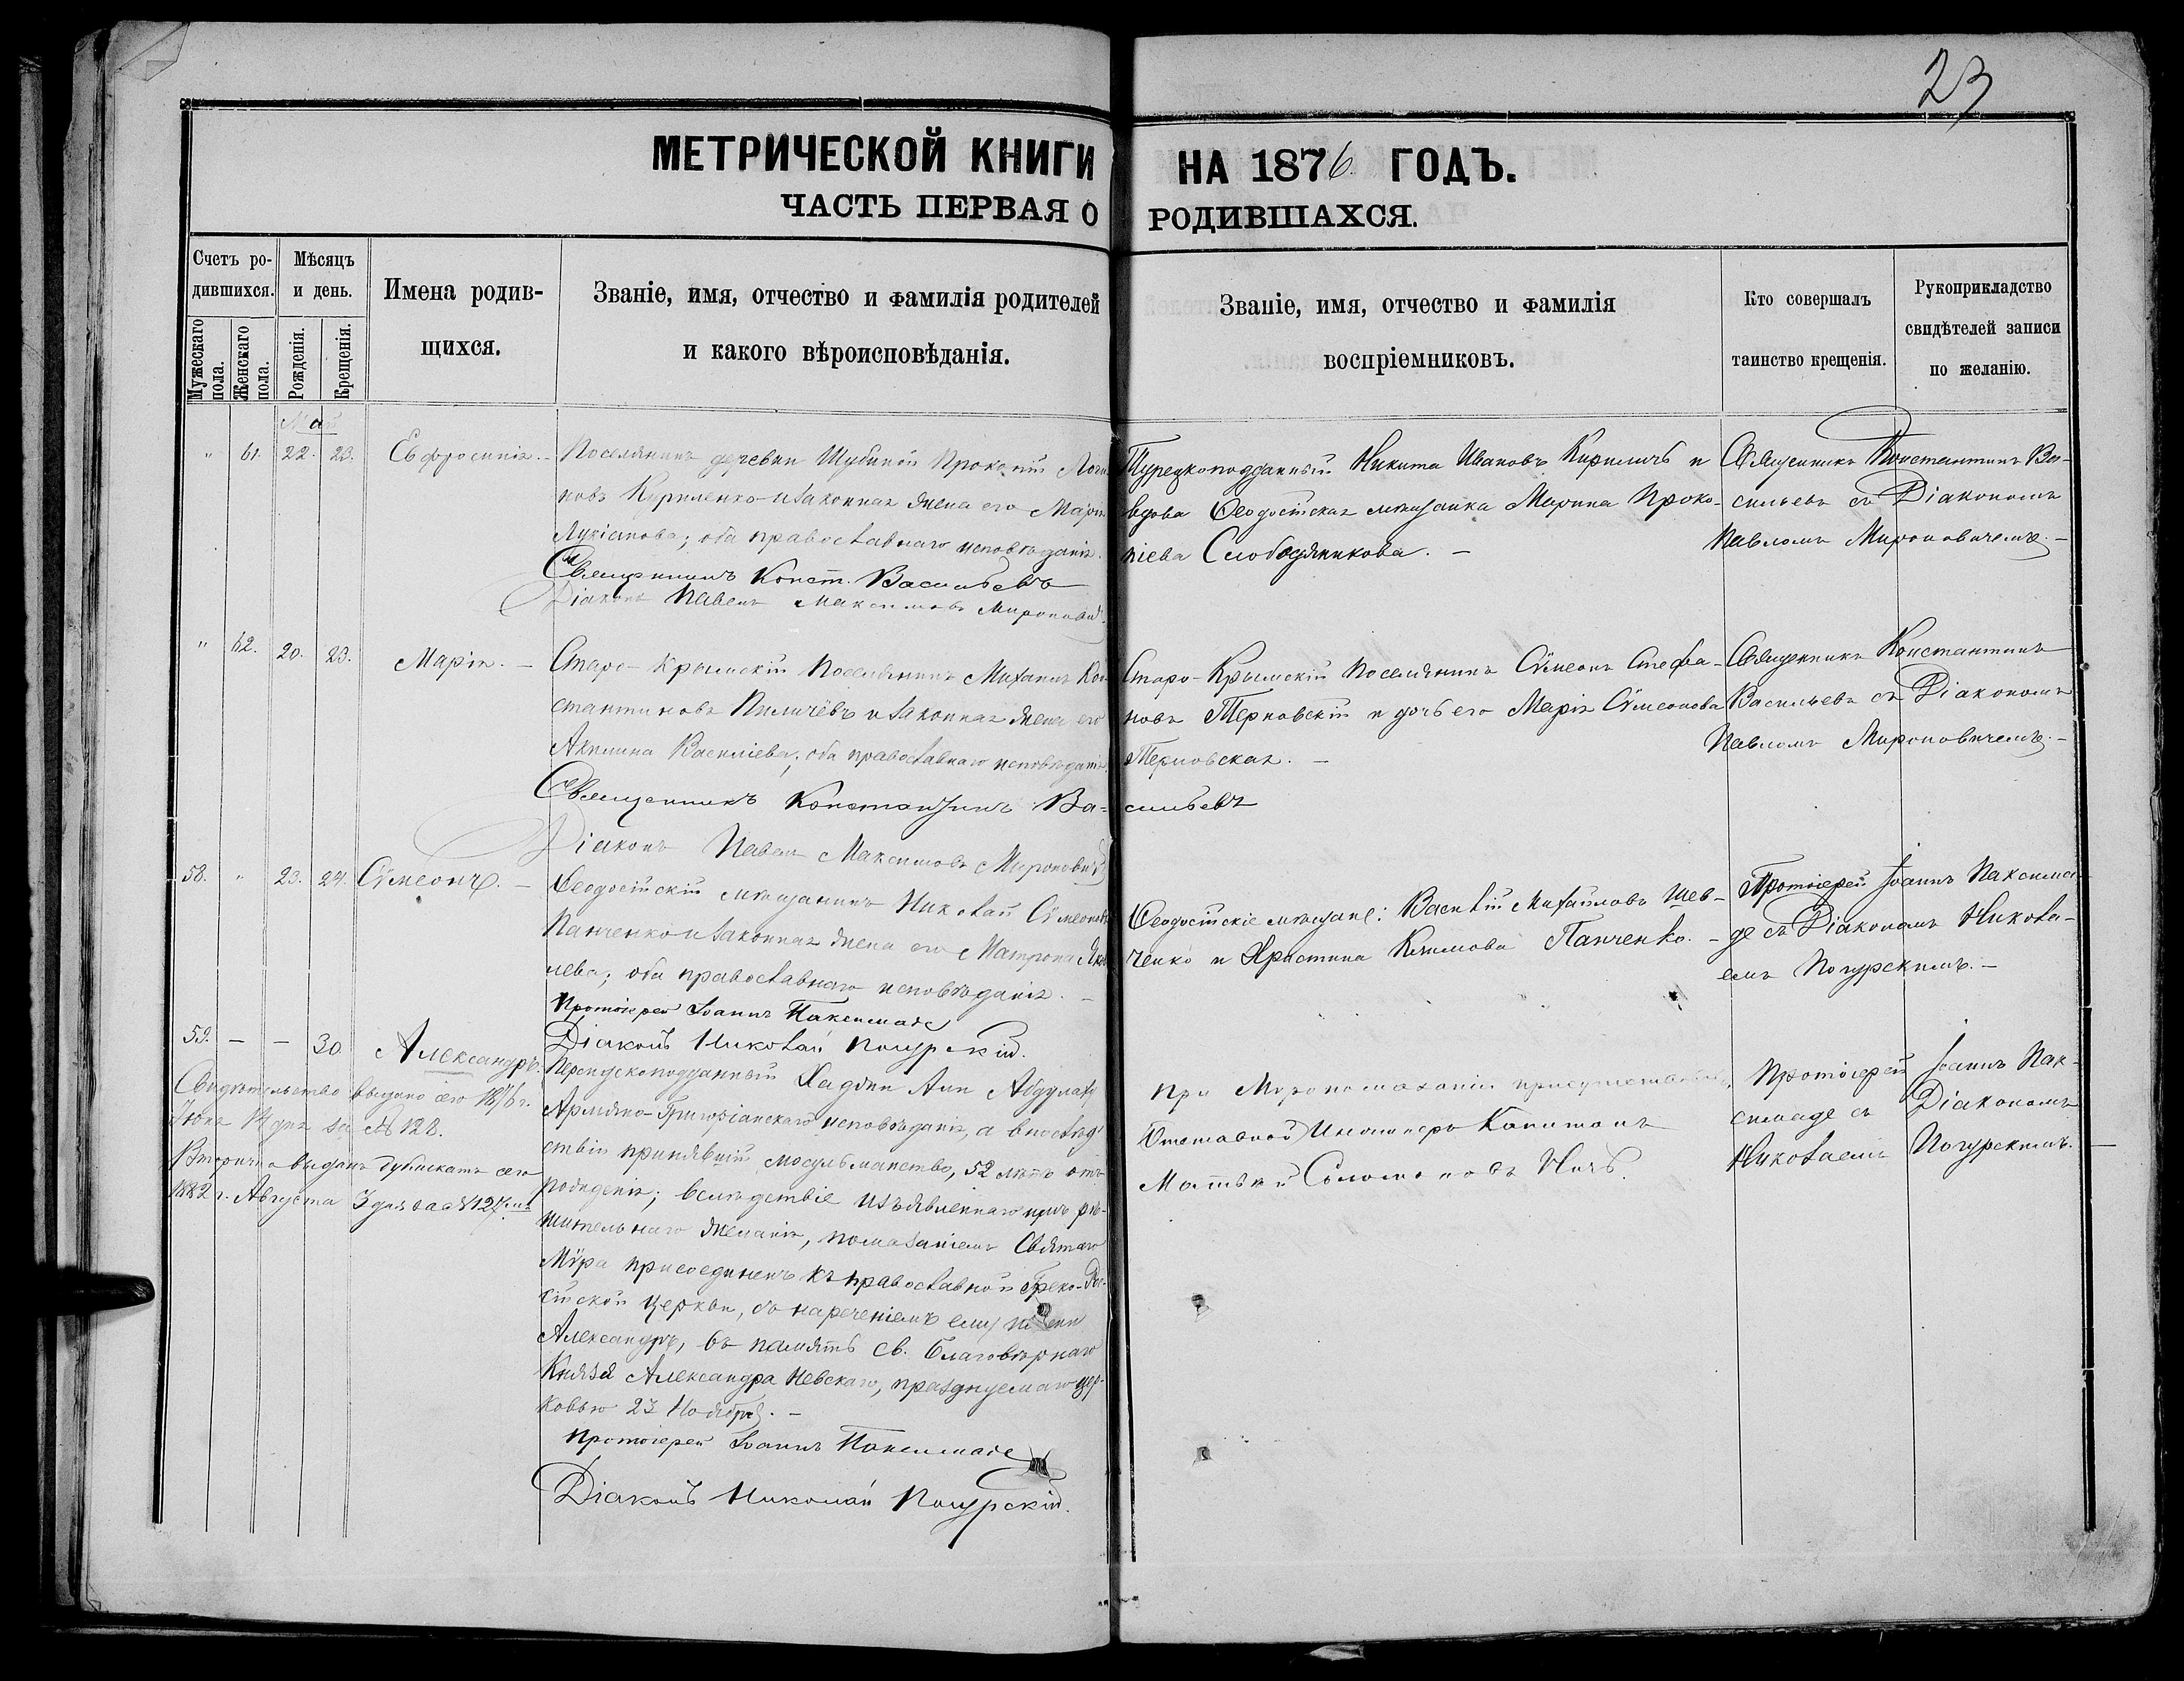 23
МЕТРИЧЕСКОЙ КНИГИ НА 1876 ГОДЪ.
ЧАСТЬ ПЕРВАЯ О РОДИВШАХСЯ.
Счетъ родившихся.
Мужескаго пола.
Женскаго пола.
Мѣсяцъ и день.
Рожденія.
Крещенія.
Имена родившихся.
Званіе, имя, отчество и фамилія родителей
и какого вѣроисповѣданія.
Званіе, имя, отчество и фамилія
воспріемниковъ.
Кто совершалъ
таинство крещенія.
Рукоприкладство
свидѣтелей записи
по желанію.
Май
" 61. 22. 23. Евфросинія.
Поселянинъ деревни Шубиной Прокопій
новъ Кириленко и законная жена его
Лукіанова; оба православнаго исповѣданія.
Священникъ Конст. Васильевъ
Діаконъ Павелъ Максимовъ Мироновичъ
Турецкоподданный Никита Ивановъ и
вдова Ѳеодосійская мѣщанка Марина Проко-
піева Слободяникова. –
Священникъ Константинъ Ва-
сильевъ съ Діакономъ
Павломъ Мироновичемъ. –
" 62. 20. 23. Марія. –
Старо-Крымскій Поселянинъ Михаилъ Кон
стантиновъ и законная жена его
Акилина Василіева; оба православнаго исповѣданія
Священникъ Константинъ Ва-
сильевъ
Діаконъ Павелъ Максимовъ Мироновичъ
Старо-Крымскій Поселянинъ Сѵмеонъ Стефа-
новъ Терновскій и дочь его Марія Сѵмеонова
Терновская. –
Священникъ Константинъ
Васильевъ съ Діакономъ
Павломъ Мироновичемъ. –
58. " 23. 24. Сѵмеонъ. –
Ѳеодосійскій мѣщанинъ Николай Сѵмеоновъ
Панченко и законная жена его Матрона
лева; оба православнаго исповѣданія. –
Протоіерей Іоаннъ Паксимаде
Діаконъ Николай Погурскій.
Ѳеодосійскіе мѣщане: Василій Михайловъ Шев-
ченко и Христина Климова Панченко. –
Протоіерей Іоаннъ Паксима-
де съ Діакономъ Никола-
емъ Погурскимъ. –
59. – – 30. Александръ.
Свидѣтельство выдано сего 1876 г.
Іюня дня за № 128.
Вторично выданъ дубликатъ сего
1882 г. Августа 3 дня за №
Персидскоподданный Хаджи Али Абдулахъ
Армяно-Григоріанскаго исповѣданія, а впослѣд-
ствіи принявшій мусульманство, 52 лѣтъ отъ
рожденія; вслѣдствіе изъявленнаго имъ рѣ-
шительнаго желанія, помазаніемъ Святаго
Мѵра присоединенъ къ православной Греко-Рос-
сійской церкви, съ нареченіемъ ему имени
Александръ, въ память св. Благовѣрнаго
Князя Александра Невскаго, празднуемаго цер-
ковью 23 Ноября. –
Протоіерей Іоаннъ Паксимаде
Діаконъ Николай Погурскій.
При Миропомазаніи присутствовалъ
Отставной Инженеръ Капитанъ
Матвѣй Соломоновъ Ничъ.
Протоіерей Іоаннъ Пак-
симаде съ Діакономъ
Николаемъ Погурскимъ. –